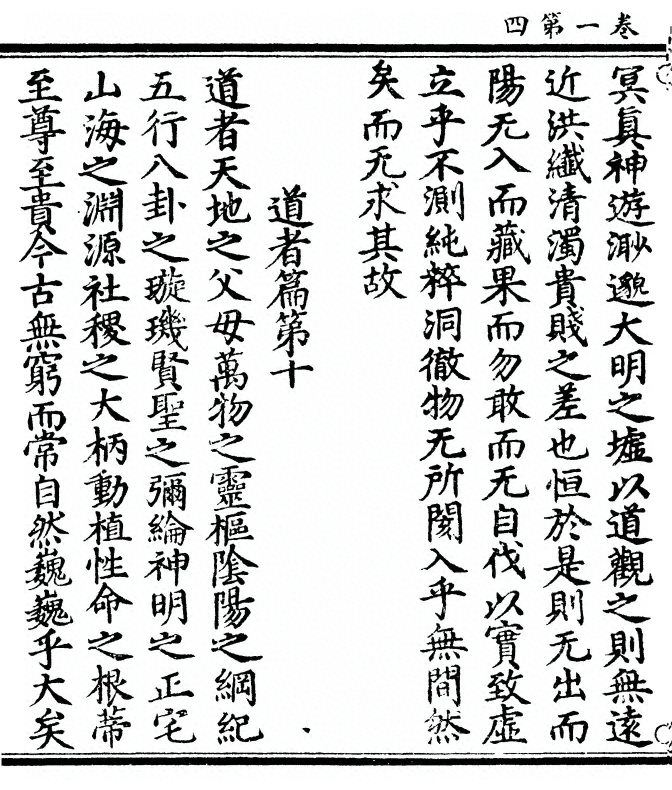 卷一第四
冥真神遊渺邈大明之墟以道觀之則無遠
近洪纖清濁貴賤之差也恒於是則无出而
陽无入而藏果而勿敢而无自伐以實致虛
立乎不測純粹洞徹物无所閡入乎無間然
矣而无求其故
道者篇第十
道者天地之父母萬物之靈樞陰陽之綱紀
五行八卦之璇璣賢聖之彌綸神明之正宅
山海之淵源社稷之大柄動植性命之根蒂
至尊至貴今古無窮而常自然巍巍乎大矣